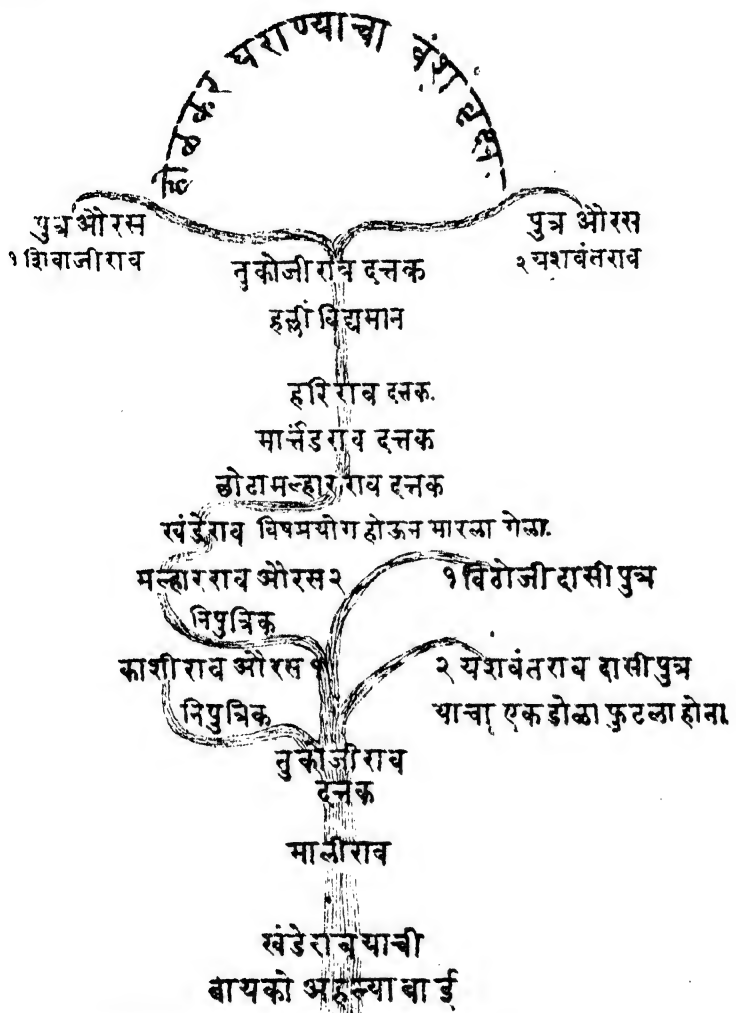 होळकर घराण्याचा वंशवृक्ष.
पुत्र औरस
१ शिवाजीराव
पुत्र औरस
२ यशवंतराव
तुकोजीराव दत्तक
हल्लीं विद्यमान
हरिराव दत्तक.
मार्त्तंडराव दत्तक
छोटा मल्हारराव दत्तक
खंडेराव विषप्रयोग होऊन मारला गेला.
मल्हारराव औरस २
निपुत्रिक
१ विठोजी दासीपुत्र
काशीराव औरस १
निपुत्रिक
२ यशवंतराव दासीपुत्र
याचा एक डोळा फुटला होता.
तुकोजीराव
दत्तक
मालीराव
खंडेराव याची
बायको अहल्याबाई